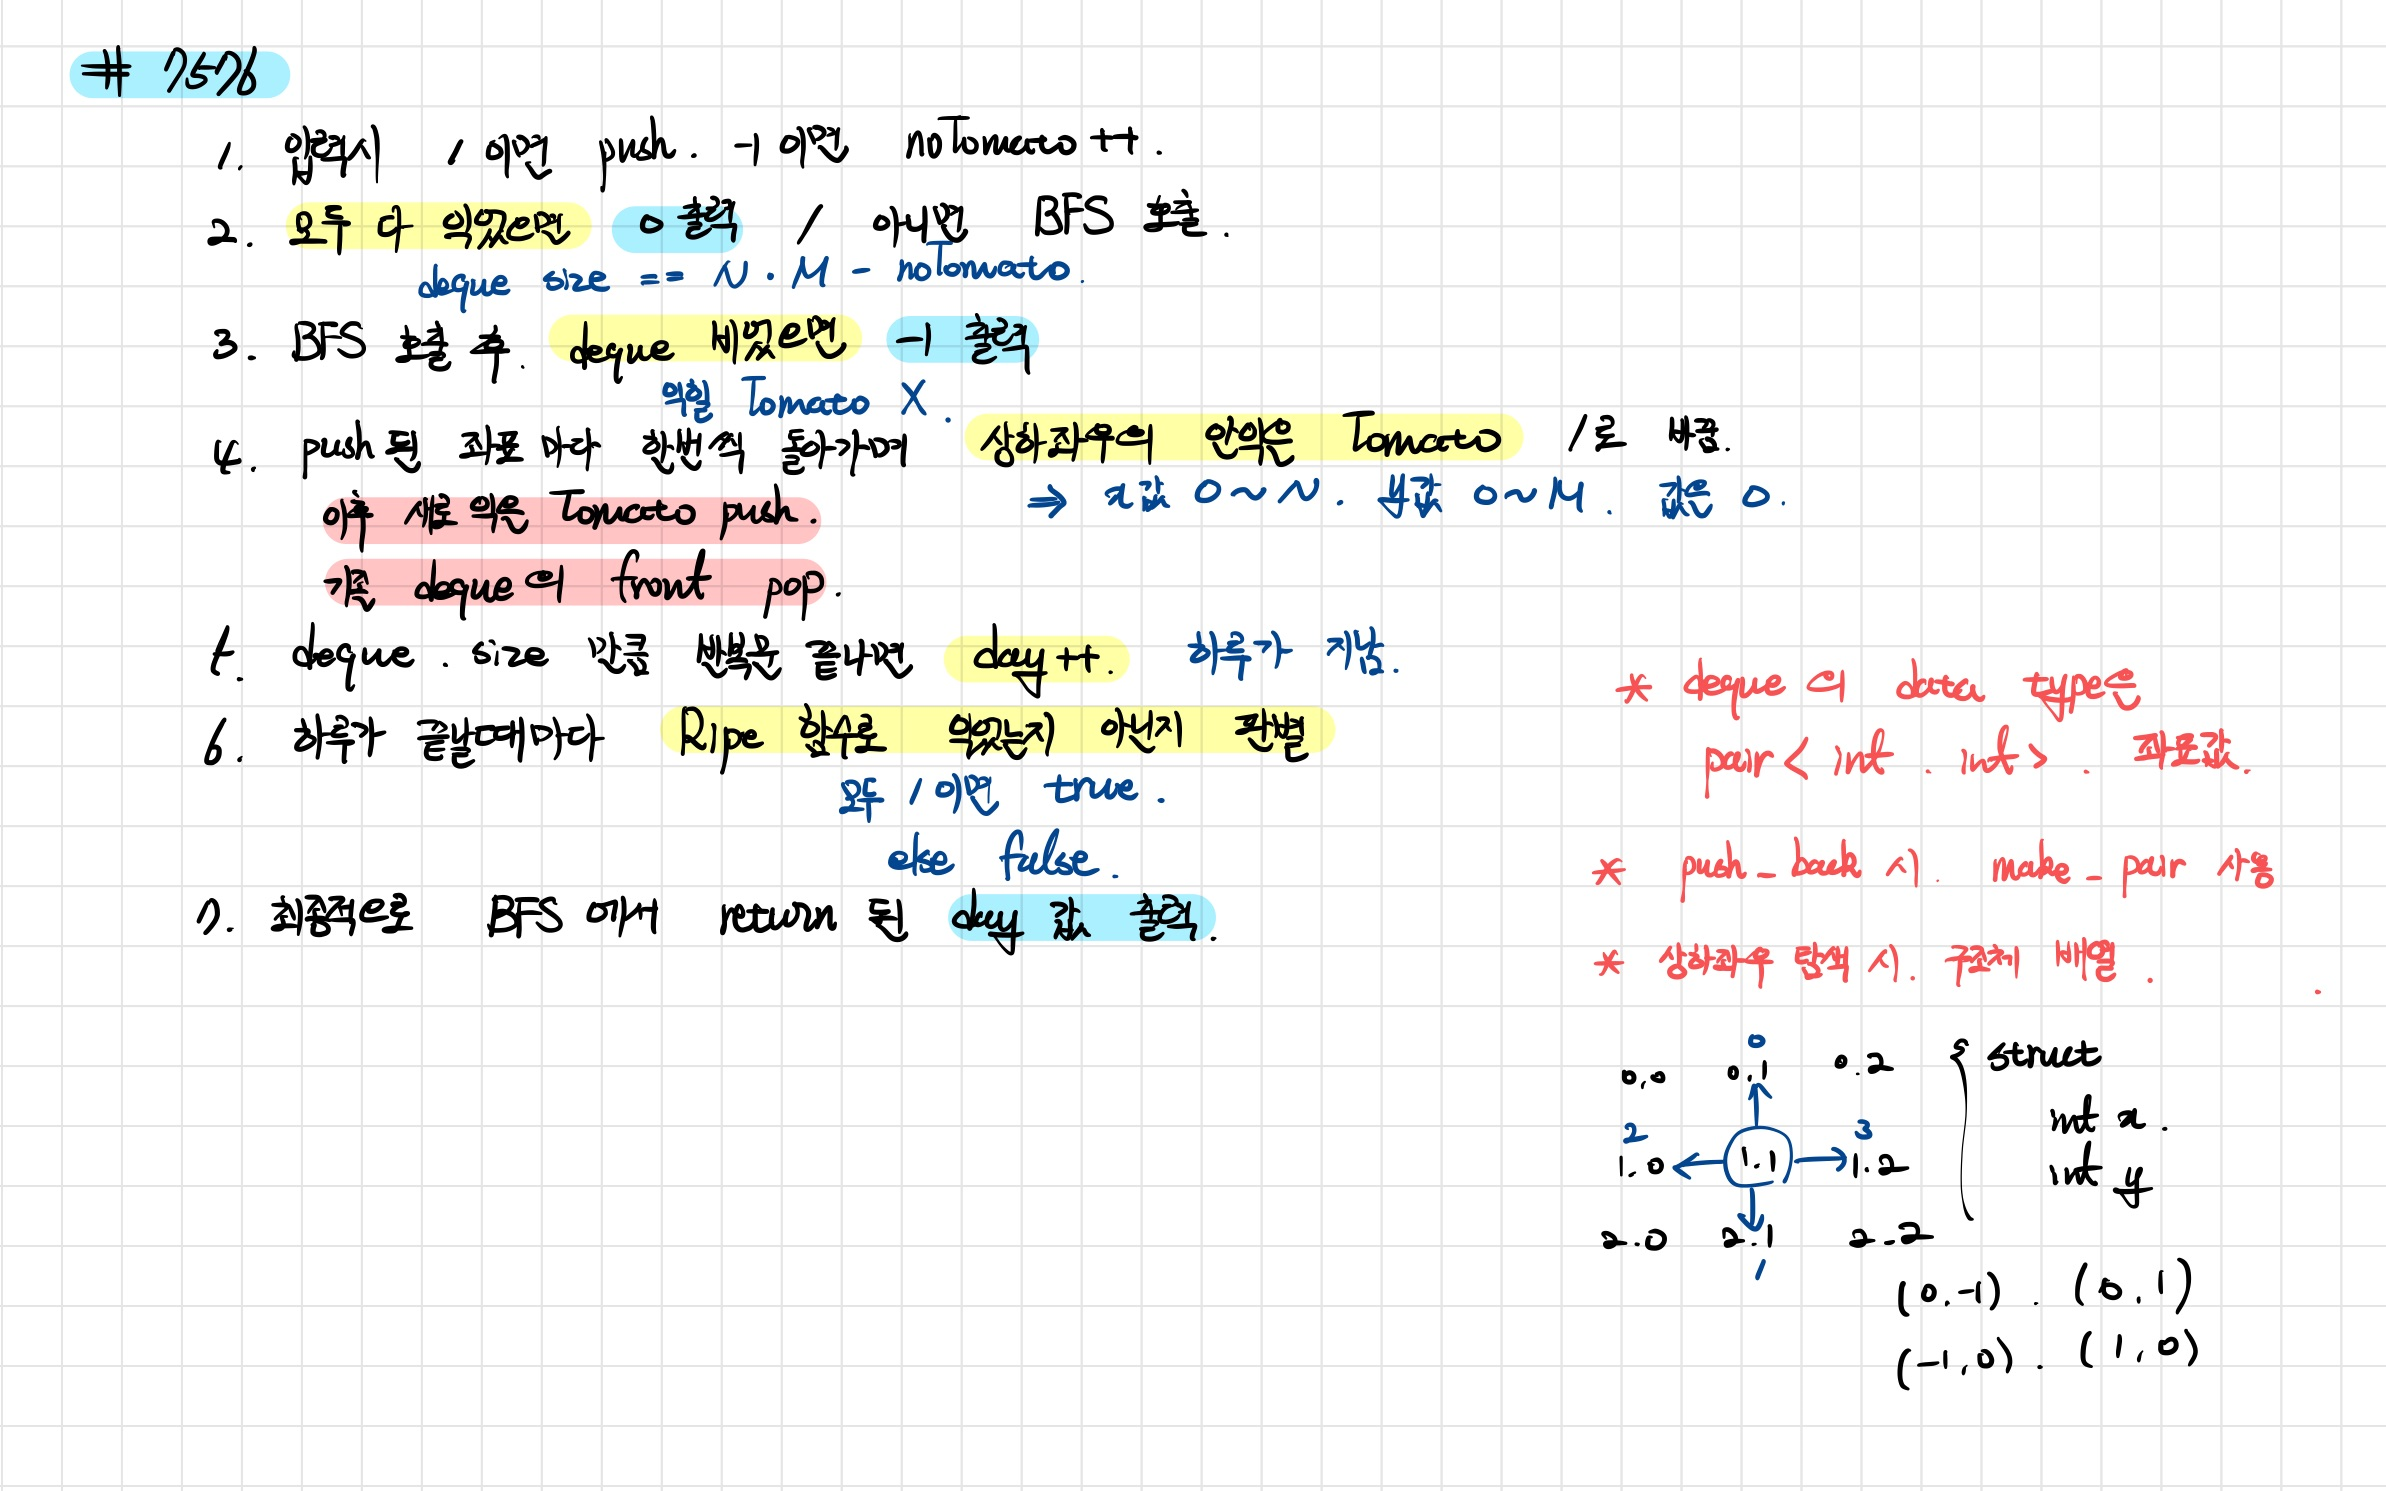 # 7576
1. 입력시 1 이면 push. -1 이면 noTomato ++.
2. 모두 다 익었으면 0 출력 / 아니면 BFS 호출.
deque size == N · M - noTomato.
3. BFS 호출 후. deque 비었으면 -1 출력
익힐 Tomato X.
4. push 된 좌표 마다 한번씩 돌아가며 상하좌우의 안익은 Tomato 1로 바꿈.
⇒ x값 0~N. y값 0~M. 값은 0.
이후 새로 익은 Tomato push.
기존 deque의 front pop.
5. deque . size 만큼 반복문 끝나면 day ++. 하루가 지남.
6. 하루가 끝날때마다 Ripe 함수로 익었는지 아닌지 판별
모두 1 이면 true.
else false.
7. 최종적으로 BFS 에서 return 된 day 값 출력.
* deque 의 data type은
pair < int . int > . 좌표값.
* push_back 시. make_pair 사용
* 상하좌우 탐색 시. 구조체 배열 .
0
0.0 0.1 0.2
2 3
1.0 1.1 1.2
2.0 2.1 2.2
1
{ struct
int x.
int y
(0.-1) . (0.1)
(-1.0) . (1.0)